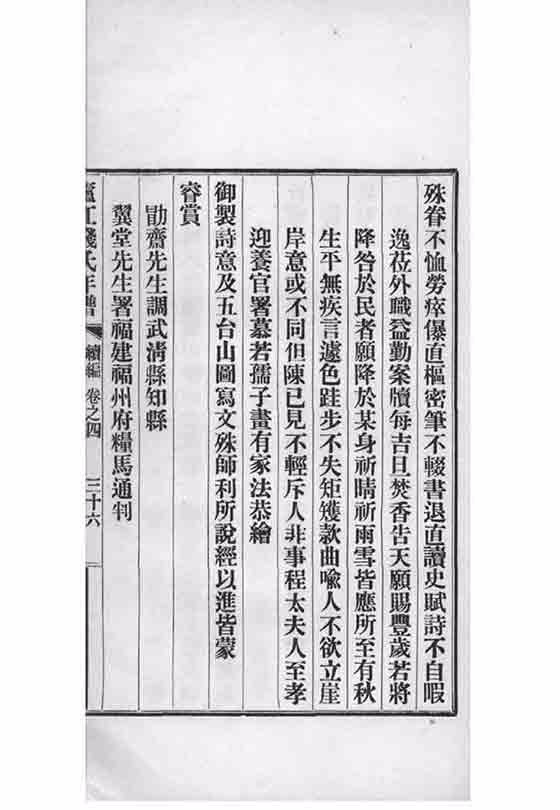 殊眷不恤勞瘁儤直樞密筆不輟書退直讀史賦詩不自暇
逸莅外職益勤案牘每吉旦焚香告天願賜豐歲若將
降咎於民者願降於某身祈晴祈雨雪皆應所至有秋
生平無疾言遽色跬步不失矩矱款曲喩人不欲立崖
岸意或不同但陳已見不輕斥人非事程太夫人至孝
迎養官署慕若孺子畫有家法恭繪
御製詩意及五台山圖寫文殊師利所說經以進皆蒙
睿賞
勖齋先生調武清縣知縣
翼堂先生署福建福州府糧馬通判
廬江錢氏年譜 續編 卷之四 三十六